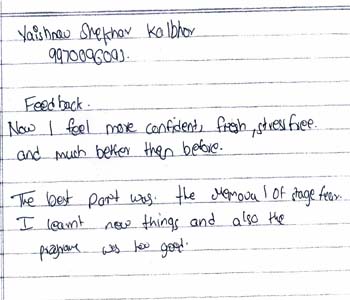 Vaishnav Shekhar Kalbhor
9970096093.
Feedback.
Now I feel more confident, fresh, stress free.
and much better then before.
The best part was. the removal Of stage fear.
I learnt new things and also the
programe was too good.